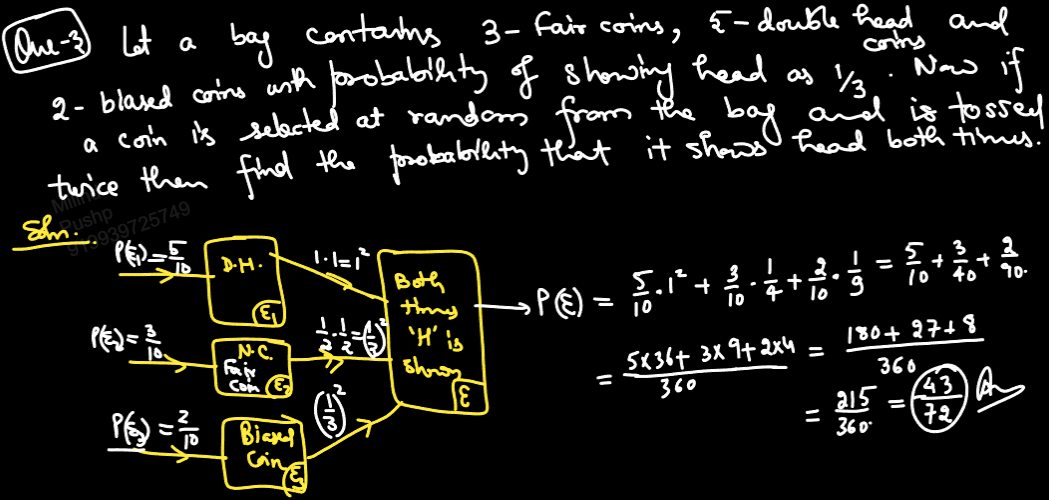 Que-3 Let a bag contains 3-Fair coins, 5-double head coins and
2-biased coins with probability of showing head as 1/3. Now if
a coin is selected at random from the bag and is tossed
twice then find the probability that it shows head both times.
Pushp
919939725749
Soln.
P(E1)=5/10
D.H.
E1
1·1=1²
P(E2)=3/10
N.C.
Fair
Coin
E2
1/2·1/2=(1/2)²
P(E3)=2/10
Biased
Coin
E3
(1/3)²
Both
times
'H' is
shown
E
→P(E) = 5/10·1² + 3/10·1/4 + 2/10·1/9 = 5/10+3/40+2/90.
= 5×36+3×9+2×4/360 = 180+27+8/360
= 215/360. = 43/72 Ans